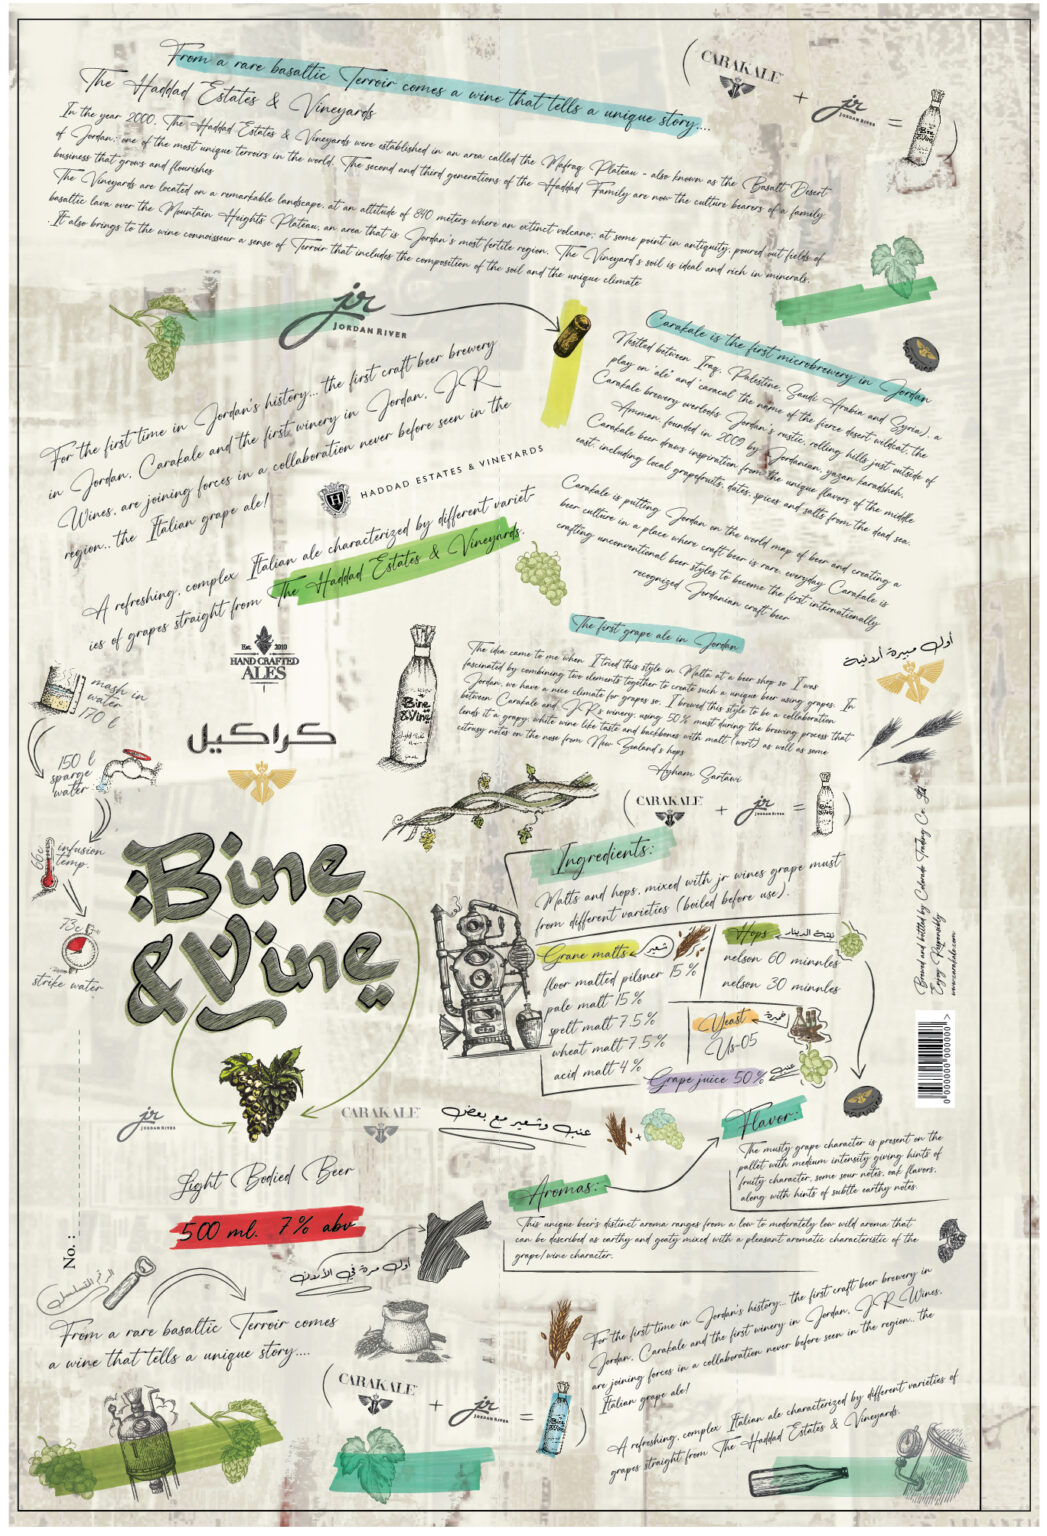 From a rare basaltic Terroir comes a wine that tells a unique story....
The Haddad Estates & Vineyards
In the year 2000, The Haddad Estates & Vineyards were established in an area called the Mafraq Plateau - also known as the Basalt Desert
of Jordan; one of the most unique terroirs in the world. The second and third generations of the Haddad Family are now the culture bearers of a family
business that grows and flourishes
The Vineyards are located on a remarkable landscape, at an altitude of 840 meters where an extinct volcano; at some point in antiquity; poured out fields of
basaltic lava over the Mountain Heights Plateau, an area that is Jordan's most fertile region. The Vineyard's soil is ideal and rich in minerals.
It also brings to the wine connoisseur a sense of Terroir that includes the composition of the soil and the unique climate
(CARAKALE + jr JORDAN RIVER = Bine &Vine)
jr
JORDAN RIVER
For the first time in Jordan's history... the first craft beer brewery
in Jordan, Carakale and the first winery in Jordan, J R
Wines, are joining forces in a collaboration never before seen in the
region.. the Italian grape ale!
H HADDAD ESTATES & VINEYARDS
A refreshing, complex Italian ale characterized by different variet-
ies of grapes straight from The Haddad Estates & Vineyards.
Carakale is the first microbrewery in Jordan
Nestled between Iraq, Palestine, Saudi Arabia and Syria), a
play on "ale" and "caracal" the name of the fierce desert wildcat, the
Carakale brewery overlooks Jordan's rustic, rolling hills just outside of
Amman, founded in 2009 by Jordanian, yazan karadsheh,
Carakale beer draws inspiration from the unique flavors of the middle
east, including local grapefruits, dates, spices and salts from the dead sea.
Carakale is putting Jordan on the world map of beer and creating a
beer culture in a place where craft beer is rare, everyday Carakale is
crafting unconventional beer styles to become the first internationally
recognized Jordanian craft beer
The first grape ale in Jordan
The idea came to me when I tried this style in Malta at a beer shop so I was
fascinated by combining two elements together to create such a unique beer using grapes. In
Jordan, we have a nice climate for grapes so, I brewed this style to be a collaboration
between Carakale and JR's winery; using 50% must during the brewing process that
lends it a grapy white wine like taste and backbones with malt (wort) as well as some
citrusy notes on the nose from New Zealand's hops
Ayham Sartawi
أول مبيرة أردنية
(CARAKALE + jr JORDAN RIVER = Bine &Vine)
Est. 2010
HAND CRAFTED
ALES
Bine
&Vine
كراكيل
mash in
water
170 l
150 l
sparge
water
66c infusion
temp.
73c
strike water
Bine
&Vine
jr JORDAN RIVER
CARAKALE
Light Bodied Beer
500 ml. 7% abv
No. :
الرقم التسلسلي
أول مرة في الأردن
From a rare basaltic Terroir comes
a wine that tells a unique story....
Ingredients:
Malts and hops, mixed with jr wines grape must
from different varieties (boiled before use).
Grane malts شعير
floor malted pilsner 15 %
pale malt 15 %
spelt malt 7.5 %
wheat malt 7.5 %
acid malt 4 %
Hops نبتة الدينار
nelson 60 minnles
nelson 30 minnles
Yeast خميرة
Us-05
Grape juice 50% عنب
عنب وشعير مع بعض
Flavor:
The musty grape character is present on the
pallet with medium intensity giving hints of
fruity character, some sour notes, oak flavors,
along with hints of subtle earthy notes.
Aromas:
This unique beer's distinct aroma ranges from a low to moderately low wild aroma that
can be described as earthy and goaty mixed with a pleasant aromatic characteristic of the
grape/wine character.
Brewed and bottled by Colorado Trading Co. Ltd.
Enjoy Responsibly
www.carakale.com
(CARAKALE + jr JORDAN RIVER = Bine &Vine)
For the first time in Jordan's history... the first craft beer brewery in
Jordan, Carakale and the first winery in Jordan, J R Wines,
are joining forces in a collaboration never before seen in the region.. the
Italian grape ale!
A refreshing, complex Italian ale characterized by different varieties of
grapes straight from The Haddad Estates & Vineyards.